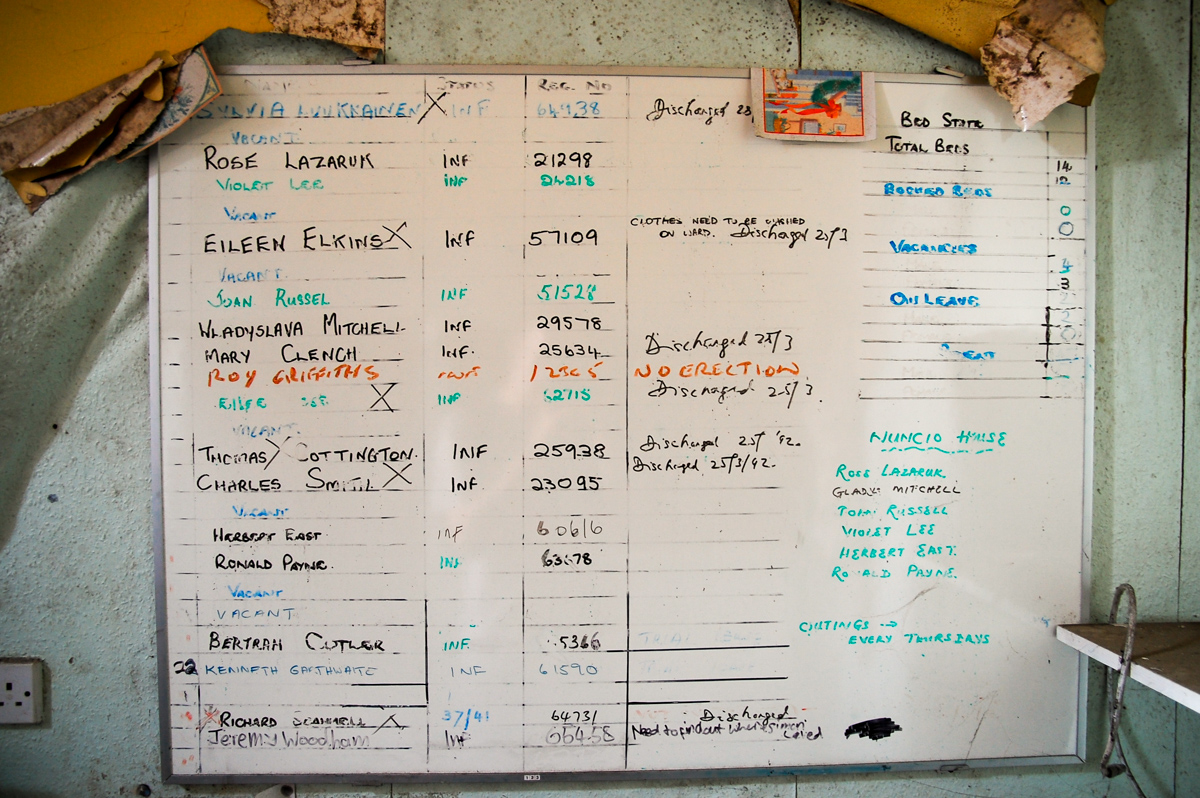 STATUS REG. NO
SYLVIA LUUKKAINEN X INF 64938 Discharged 23
VACANT
ROSE LAZARUK INF 21298
VIOLET LEE INF 24218
VACANT
EILEEN ELKINS X INF 57109 CLOTHES NEED TO BE WASHED
ON WARD. Discharged 25/3
VACANT
JOAN RUSSEL INF 51528
WLADYSLAVA MITCHELL INF 29578
MARY CLENCH INF. 25634 Discharged 25/3
ROY GRIFFITHS 12345 NO ERECTION
X INF 62715 Discharged 25/3.
VACANT
THOMAS X COTTINGTON. INF 25938 Discharged 25/ '92.
CHARLES SMITH X INF. 23095 Discharged 25/3/92.
VACANT
HERBERT EAST INF 60616
RONALD PAYNE. INF 63678
VACANT
VACANT
BERTRAM CUTLER INF. 5366
KENNETH GARTHWAITE INF 61590
RICHARD X 37/41 64731 Discharged
Jeremy Woodham INF 66458 Need to find out where simon
BED STATE
TOTAL BEDS
14
12
BOOKED BEDS
0
0
VACANCIES
4
3
ON LEAVE
2
2
0
NUNCIO HOUSE
ROSE LAZARUK
GLADYS MITCHELL
TOM RUSSELL
VIOLET LEE
HERBERT EAST.
RONALD PAYNE.
OUTINGS →
EVERY THURSDAYS
123